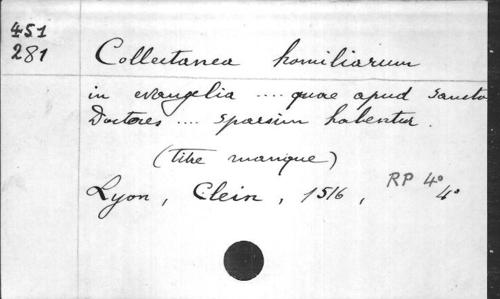 451
281
Collectanea homiliarum
in evangelia .... quae apud sancto
Doctores .... sparsim habentur.
(titre manque)
Lyon, Clein, 1516, RP 4° 4°